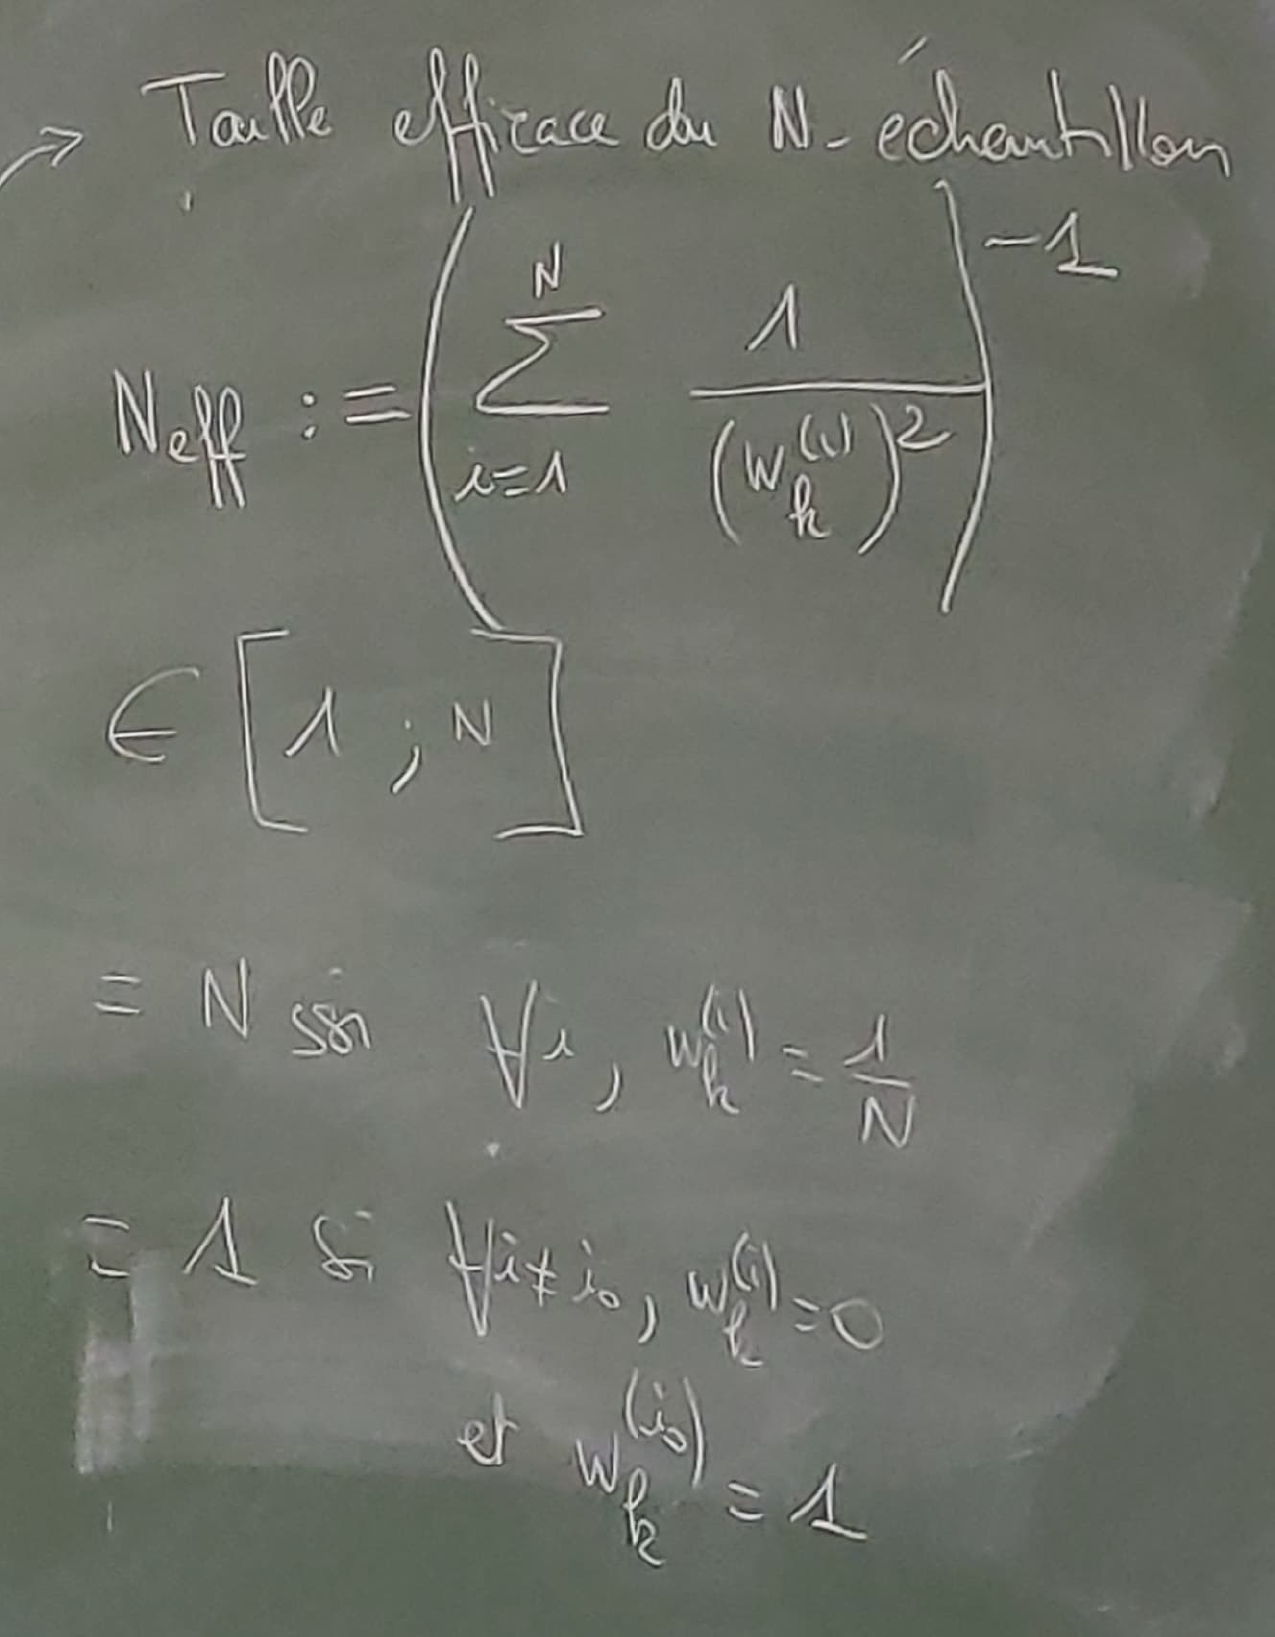 → Taille efficace du N-échantillon
N_eff := ( \sum_{i=1}^{N} \frac{1}{(w_k^{(i)})^2} )^{-1}
∈ [1 ; N]
= N ssi ∀i, w_k^{(i)} = \frac{1}{N}
= 1 si ∀i≠i_0, w_k^{(i)} = 0
et w_k^{(i_0)} = 1